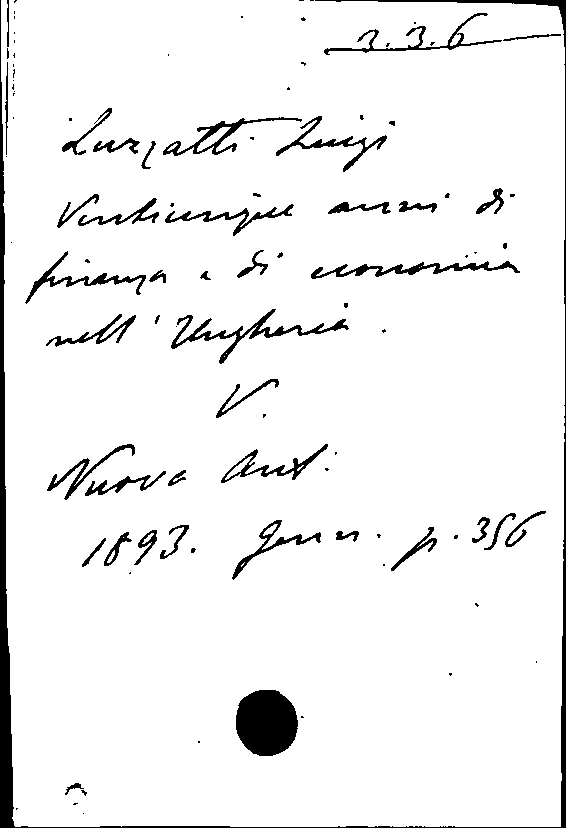 3.3.6
Luzzatti Luigi
Venticinque anni di
finanza e di economia
nell' Ungheria.
V.
Nuova Ant.
1893. Genn. p. 356